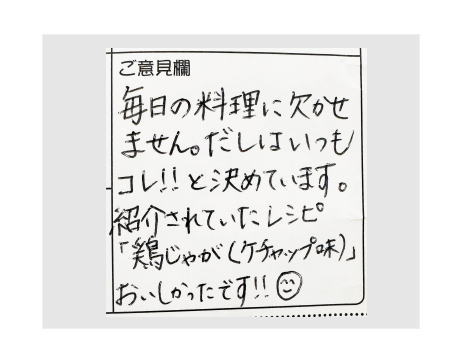 ご意見欄
毎日の料理に欠かせ
ません。だしはいつも
コレ!!と決めています。
紹介されていたレシピ
「鶏じゃが(ケチャップ味)」
おいしかったです!!